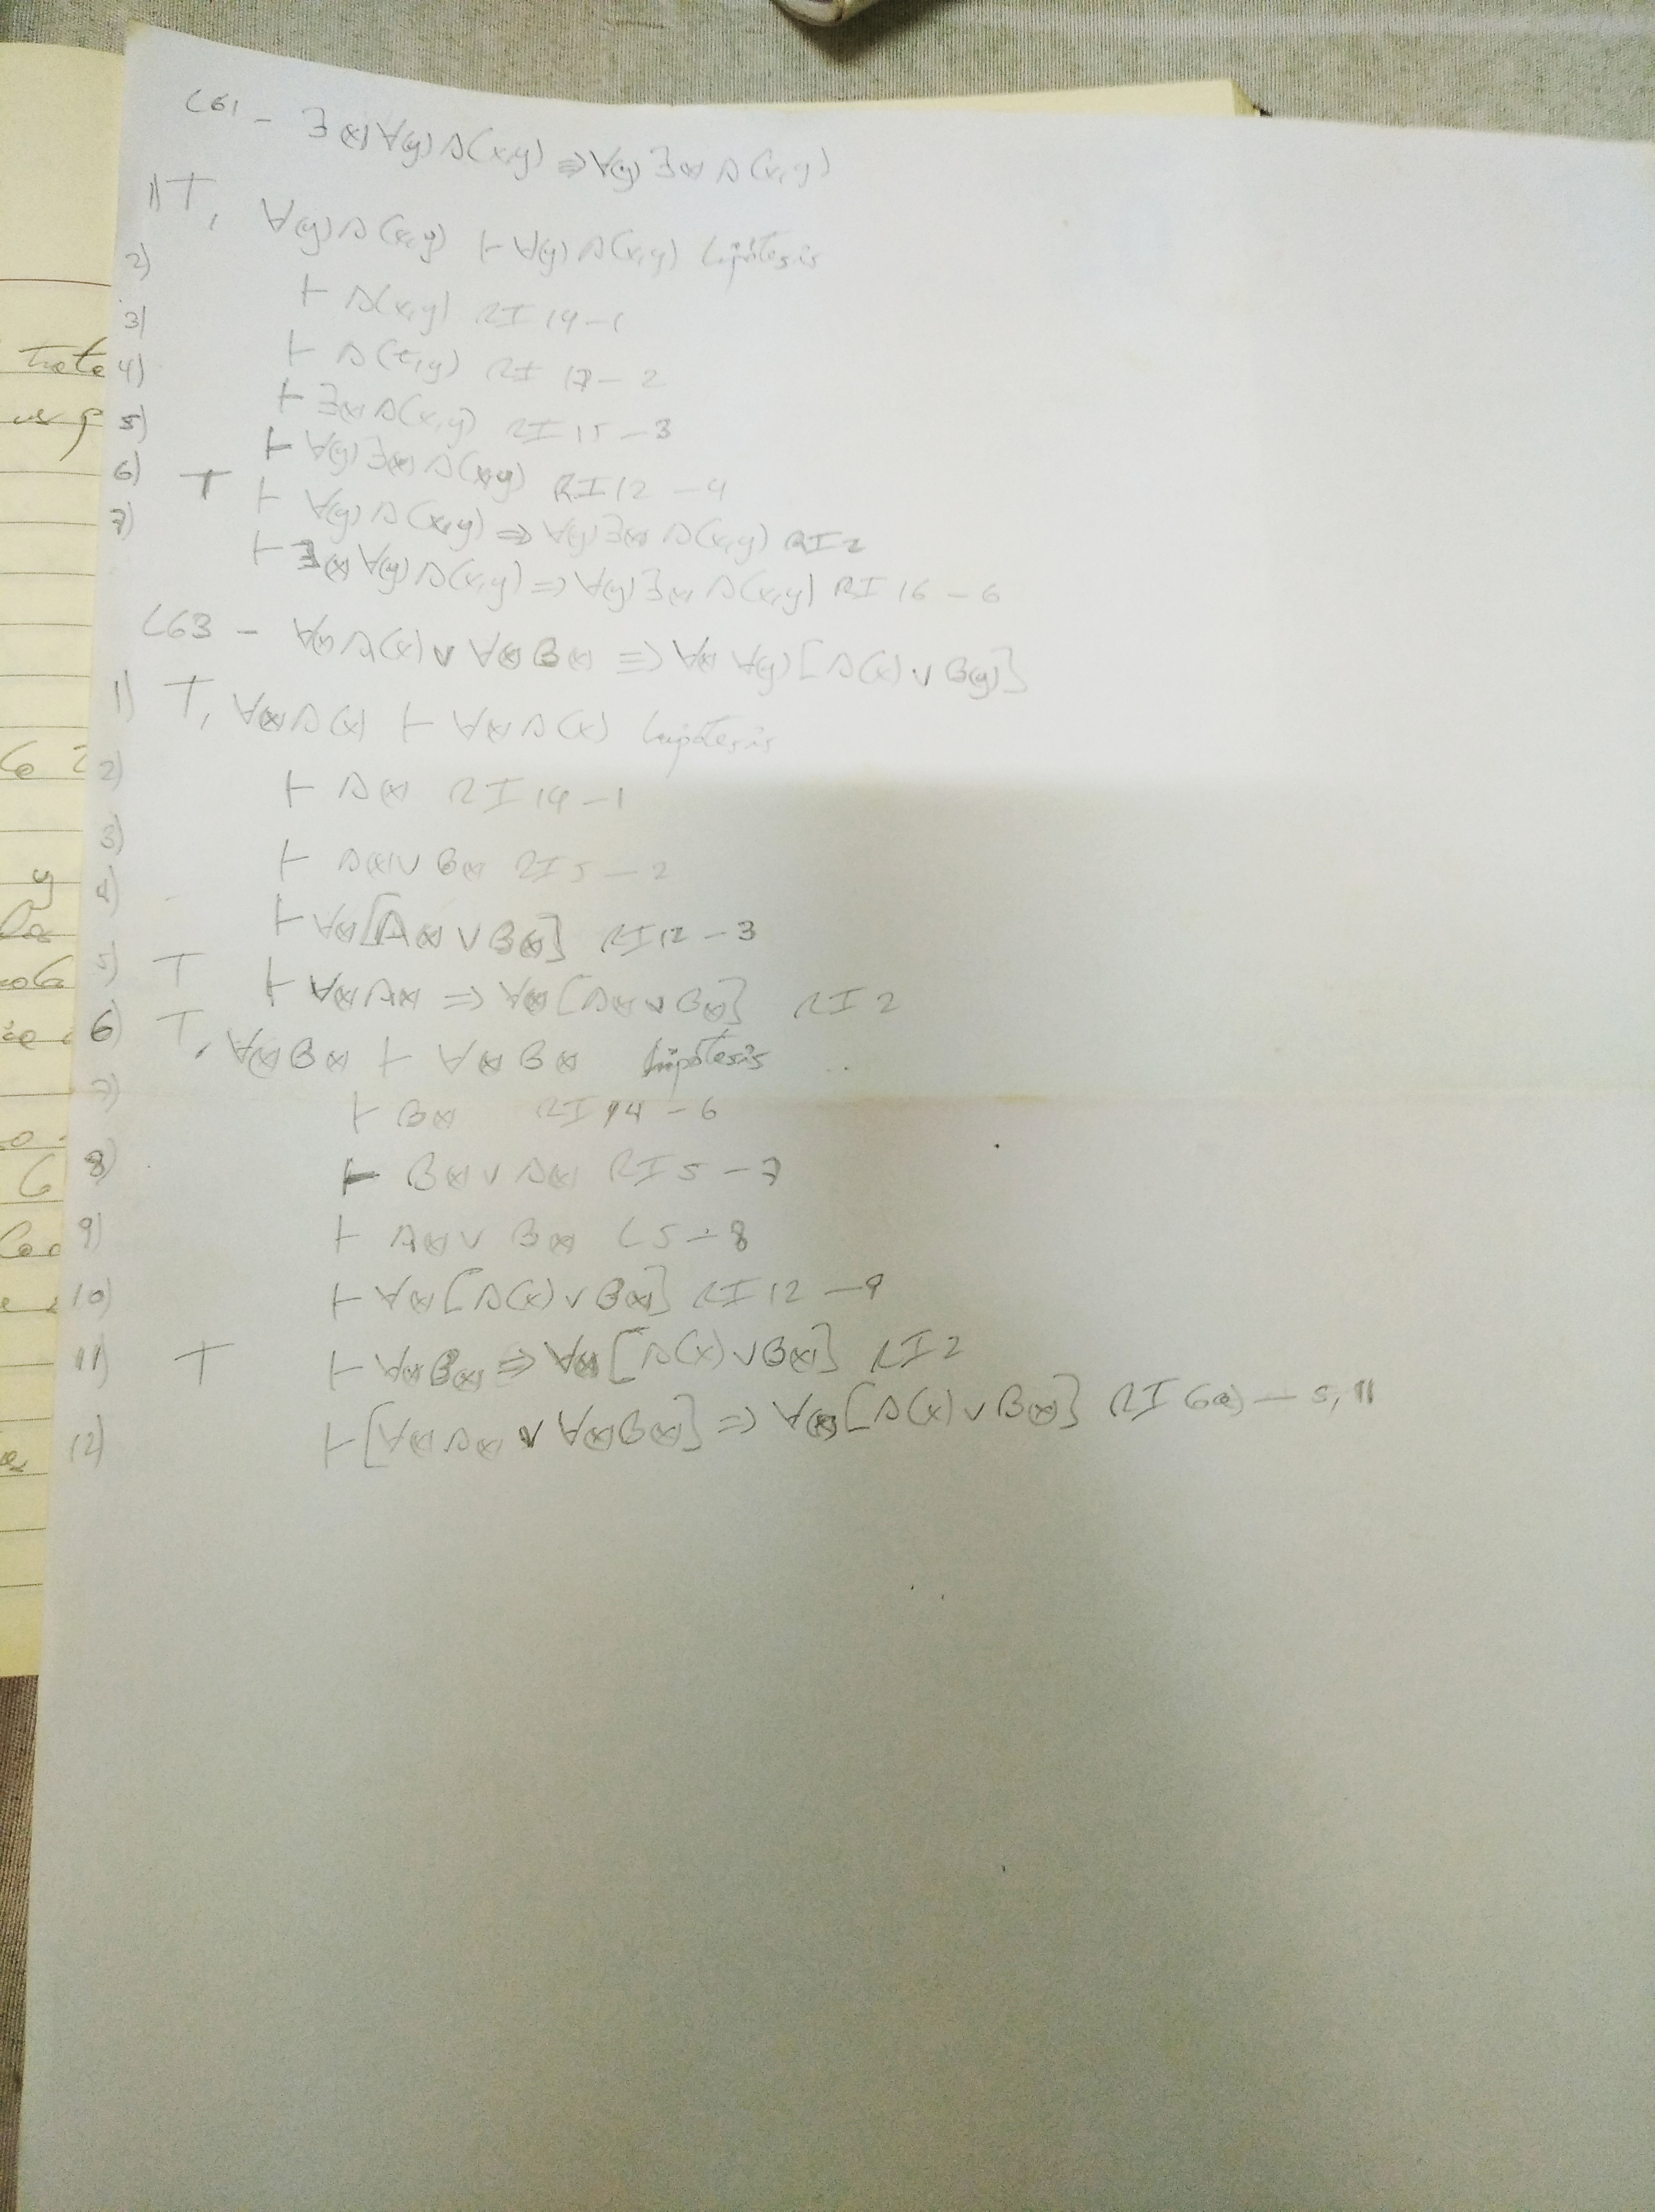 C61 - ∃(x)∀(y)A(x,y) ⇒ ∀(y)∃(x)A(x,y)
1) T, ∀(y)A(x,y) ⊢ ∀(y)A(x,y) hipótesis
2) ⊢ A(x,y) RI 14-1
3) ⊢ A(t,y) RI 17-2
4) ⊢ ∃(x)A(x,y) RI 15-3
5) ⊢ ∀(y)∃(x)A(x,y) RI 12-4
6) T ⊢ ∀(y)A(x,y) ⇒ ∀(y)∃(x)A(x,y) RI 2
7) ⊢ ∃(x)∀(y)A(x,y) ⇒ ∀(y)∃(x)A(x,y) RI 16-6
C63 - ∀(x)A(x) ∨ ∀(x)B(x) ⇒ ∀(x)∀(y)[A(x) ∨ B(y)]
1) T, ∀(x)A(x) ⊢ ∀(x)A(x) hipótesis
2) ⊢ A(x) RI 14-1
3) ⊢ A(x) ∨ B(x) RI 5-2
4) ⊢ ∀(x)[A(x) ∨ B(x)] RI 12-3
5) T ⊢ ∀(x)A(x) ⇒ ∀(x)[A(x) ∨ B(x)] RI 2
6) T, ∀(x)B(x) ⊢ ∀(x)B(x) hipótesis
7) ⊢ B(x) RI 14-6
8) ⊢ B(x) ∨ A(x) RI 5-7
9) ⊢ A(x) ∨ B(x) C5-8
10) ⊢ ∀(x)[A(x) ∨ B(x)] RI 12-9
11) T ⊢ ∀(x)B(x) ⇒ ∀(x)[A(x) ∨ B(x)] RI 2
12) ⊢ [∀(x)A(x) ∨ ∀(x)B(x)] ⇒ ∀(x)[A(x) ∨ B(x)] RI 6a) - 5, 11